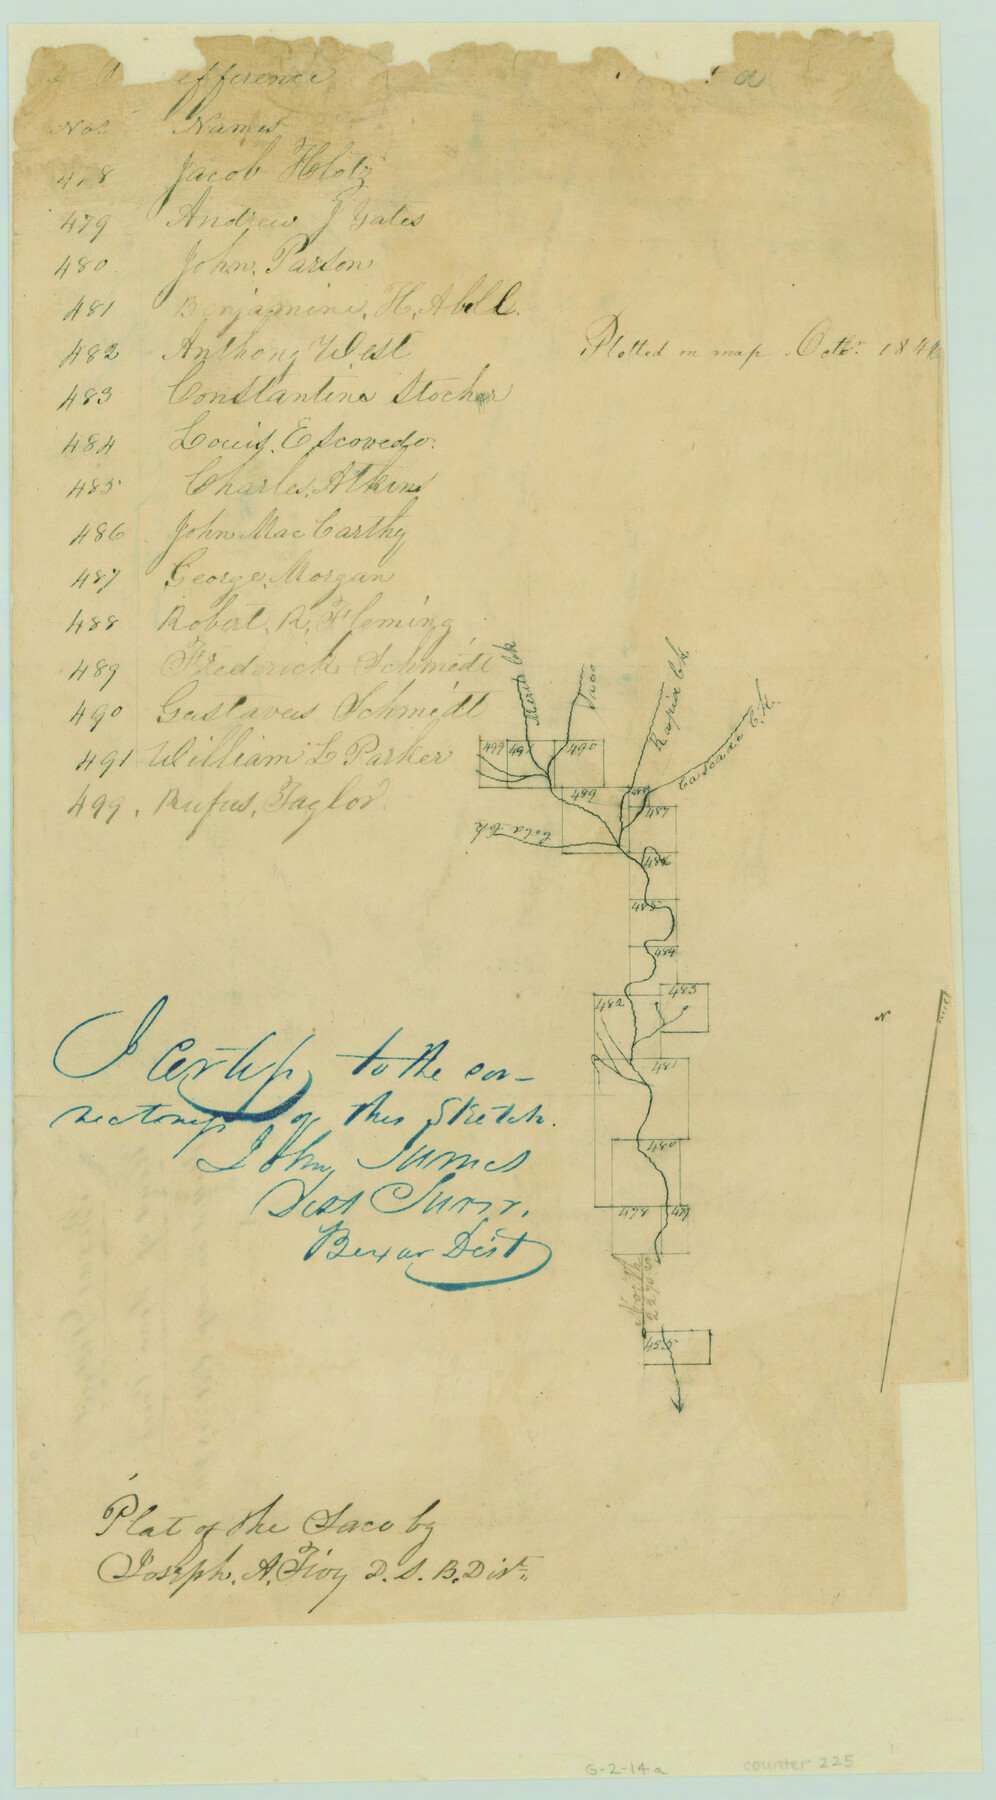 efference
Nos Names
478 Jacob Hlotz
479 Andrew J Yates
480 John, Parson
481 Benjamine, H, Abell.
482 Anthony West
Plotted on map Octbr. 184
483 Constantine Stocher
484 Louis, Escovedo.
485 Charles, Atkins
486 John Mac Carthy
487 George, Morgan
488 Robert, R, Fleming
489 Frederick Schmedt
490 Gustavus Schmedt
491 William L Parker
499, Rufus, Taylor
Ck
Saco
Rapid Ck
Cascade C.K.
499 491 490
489
487
Cold Ck
486
485
484
482 483
N
481
480
478 479
North
455
I Certify to the cor-
rectness of this Sketch.
John James
Dist Surr.
Bexar Dist
Plat of the Saco by
Joseph, A, Fioy D. S. B. Dist.
G-2-14a
counter 225